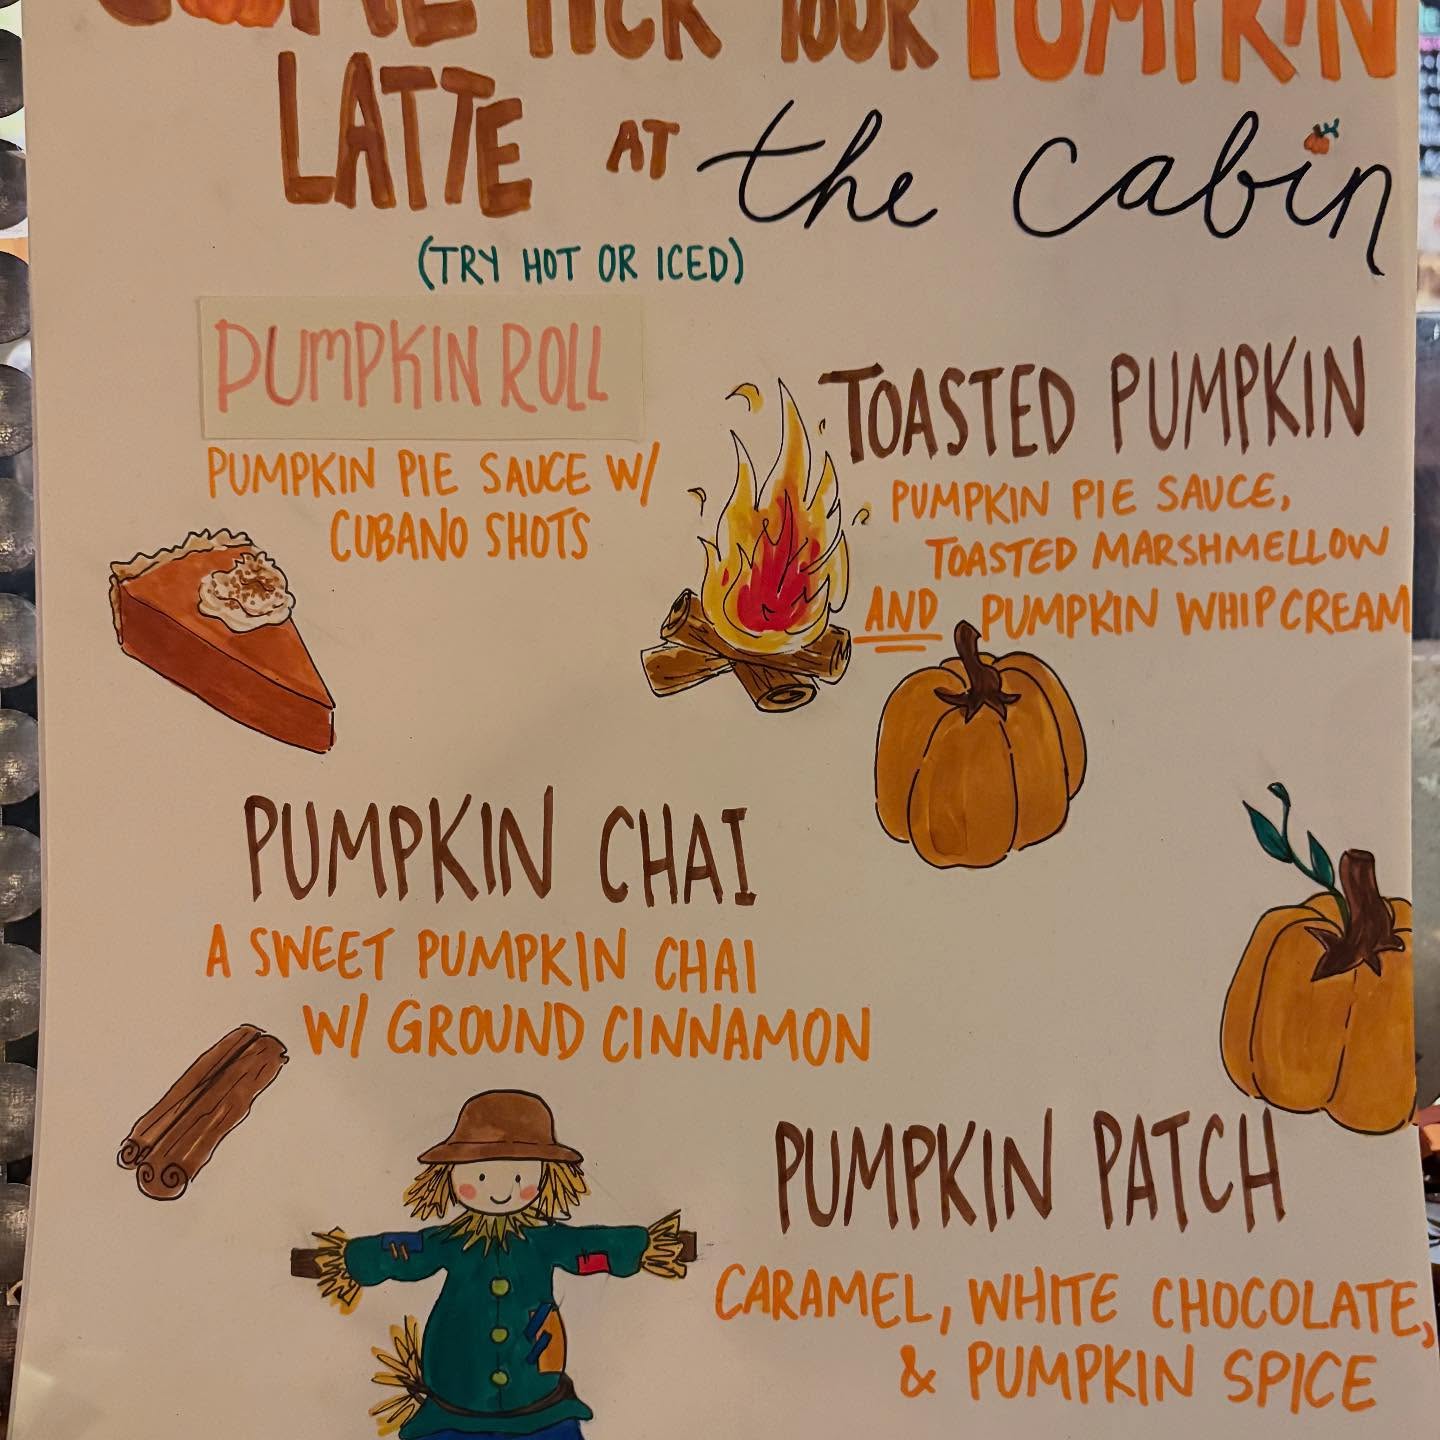 COME PICK YOUR PUMPKIN
LATTE AT the cabin
(TRY HOT OR ICED)
PUMPKIN ROLL
PUMPKIN PIE SAUCE W/
CUBANO SHOTS
TOASTED PUMPKIN
PUMPKIN PIE SAUCE,
TOASTED MARSHMELLOW
AND PUMPKIN WHIPCREAM
PUMPKIN CHAI
A SWEET PUMPKIN CHAI
W/ GROUND CINNAMON
PUMPKIN PATCH
CARAMEL, WHITE CHOCOLATE,
& PUMPKIN SPICE